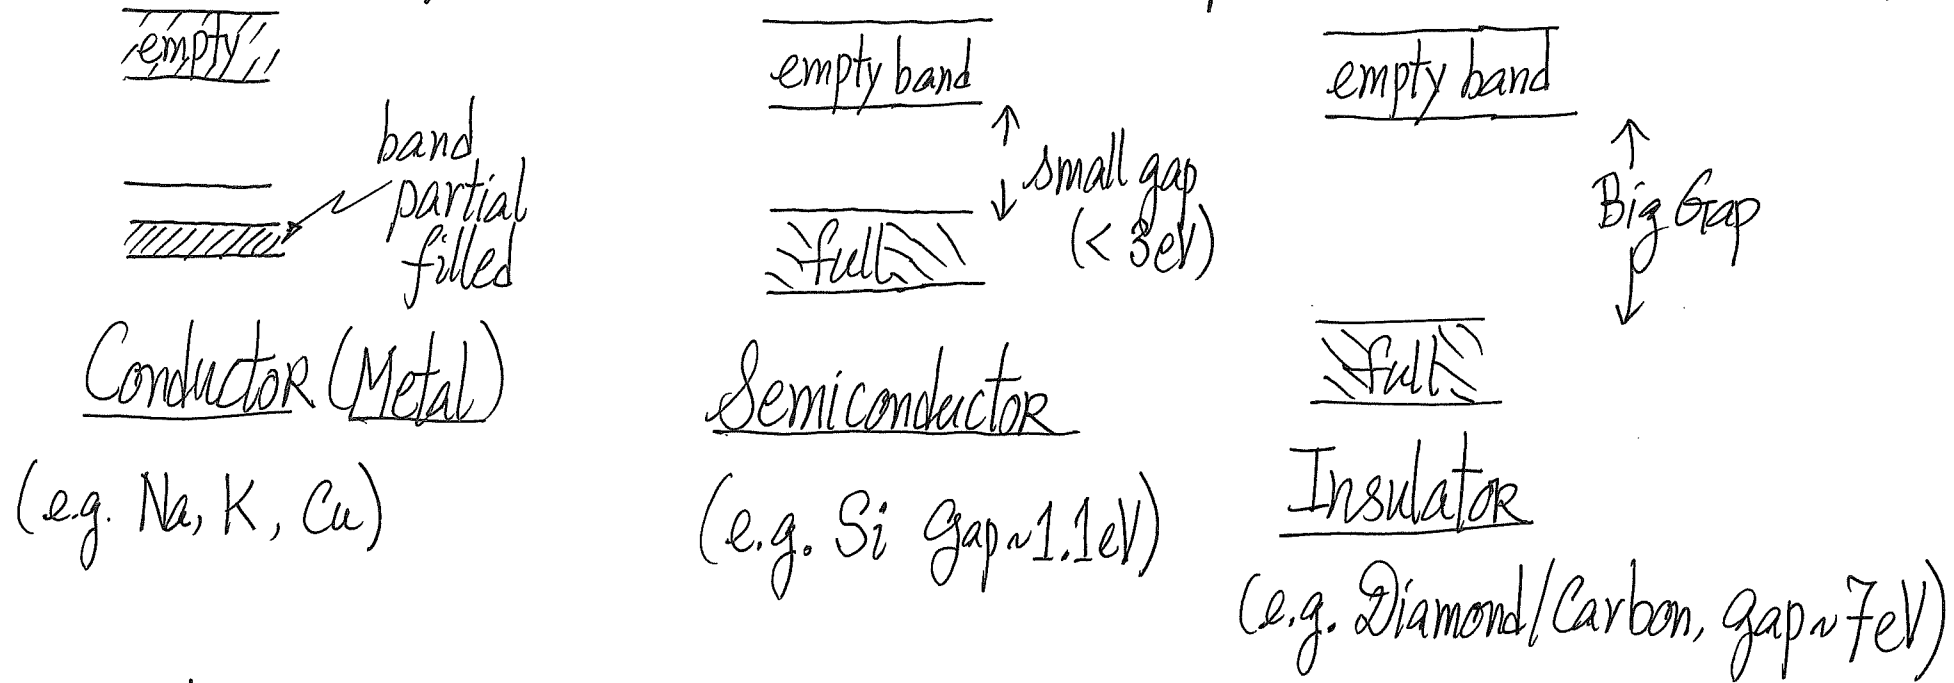 empty
band
partial
filled
Conductor (Metal)
(e.g. Na, K, Cu)
empty band
small gap
(< 3eV)
full
Semiconductor
(e.g. Si gap ~ 1.1eV)
empty band
Big Gap
full
Insulator
(e.g. Diamond/Carbon, gap ~ 7eV)